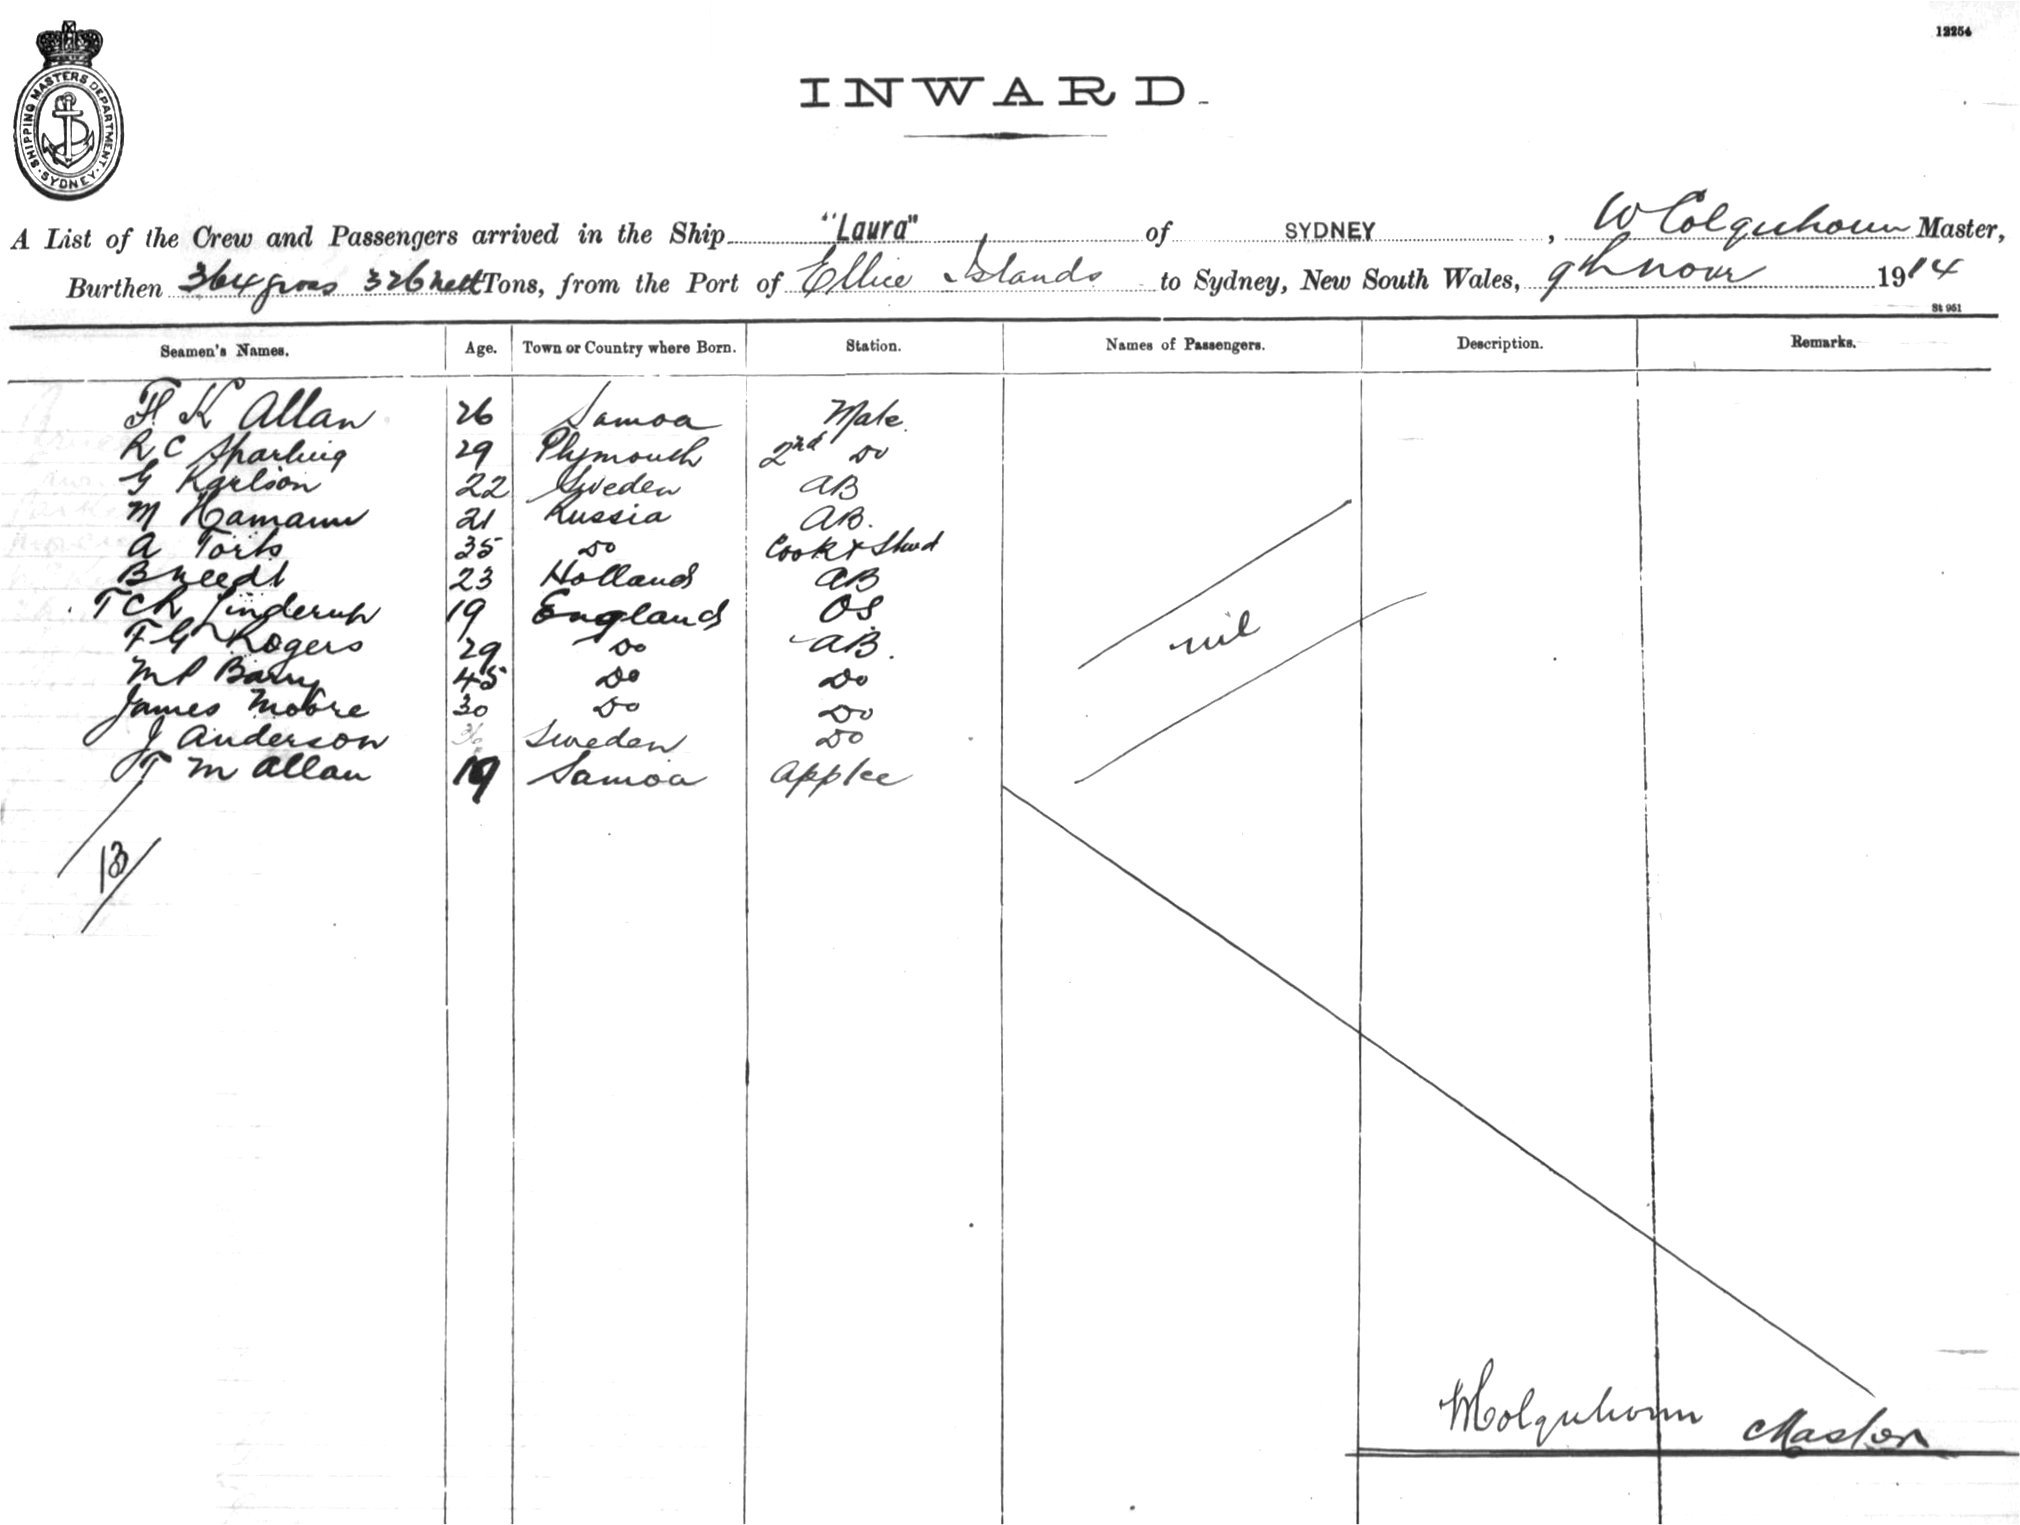 12254
SHIPPING MASTERS DEPARTMENT · SYDNEY ·
INWARD
A List of the Crew and Passengers arrived in the Ship "Laura" of SYDNEY, W Colquhoun Master,
Burthen 364 gross 326 nett Tons, from the Port of Ellice Islands to Sydney, New South Wales, 9th Novr 1914
St 951
Seamen's Names. Age. Town or Country where Born. Station. Names of Passengers. Description. Remarks.
K Allan 26 Samoa Mate
R C Sparling 29 Plymouth 2nd Do
G Karlson 22 Sweden AB
M Hamann 21 Russia AB.
A 35 Do Cook & Stwd
B 23 Holland AB
T C R Linderup 19 England OS
F G Rogers 29 Do AB.
M P Barry 45 Do Do
James Moore 30 Do Do
nil
J Anderson 36 Sweden Do
T M Allan 19 Samoa Apptce
13
W Colquhoun Master